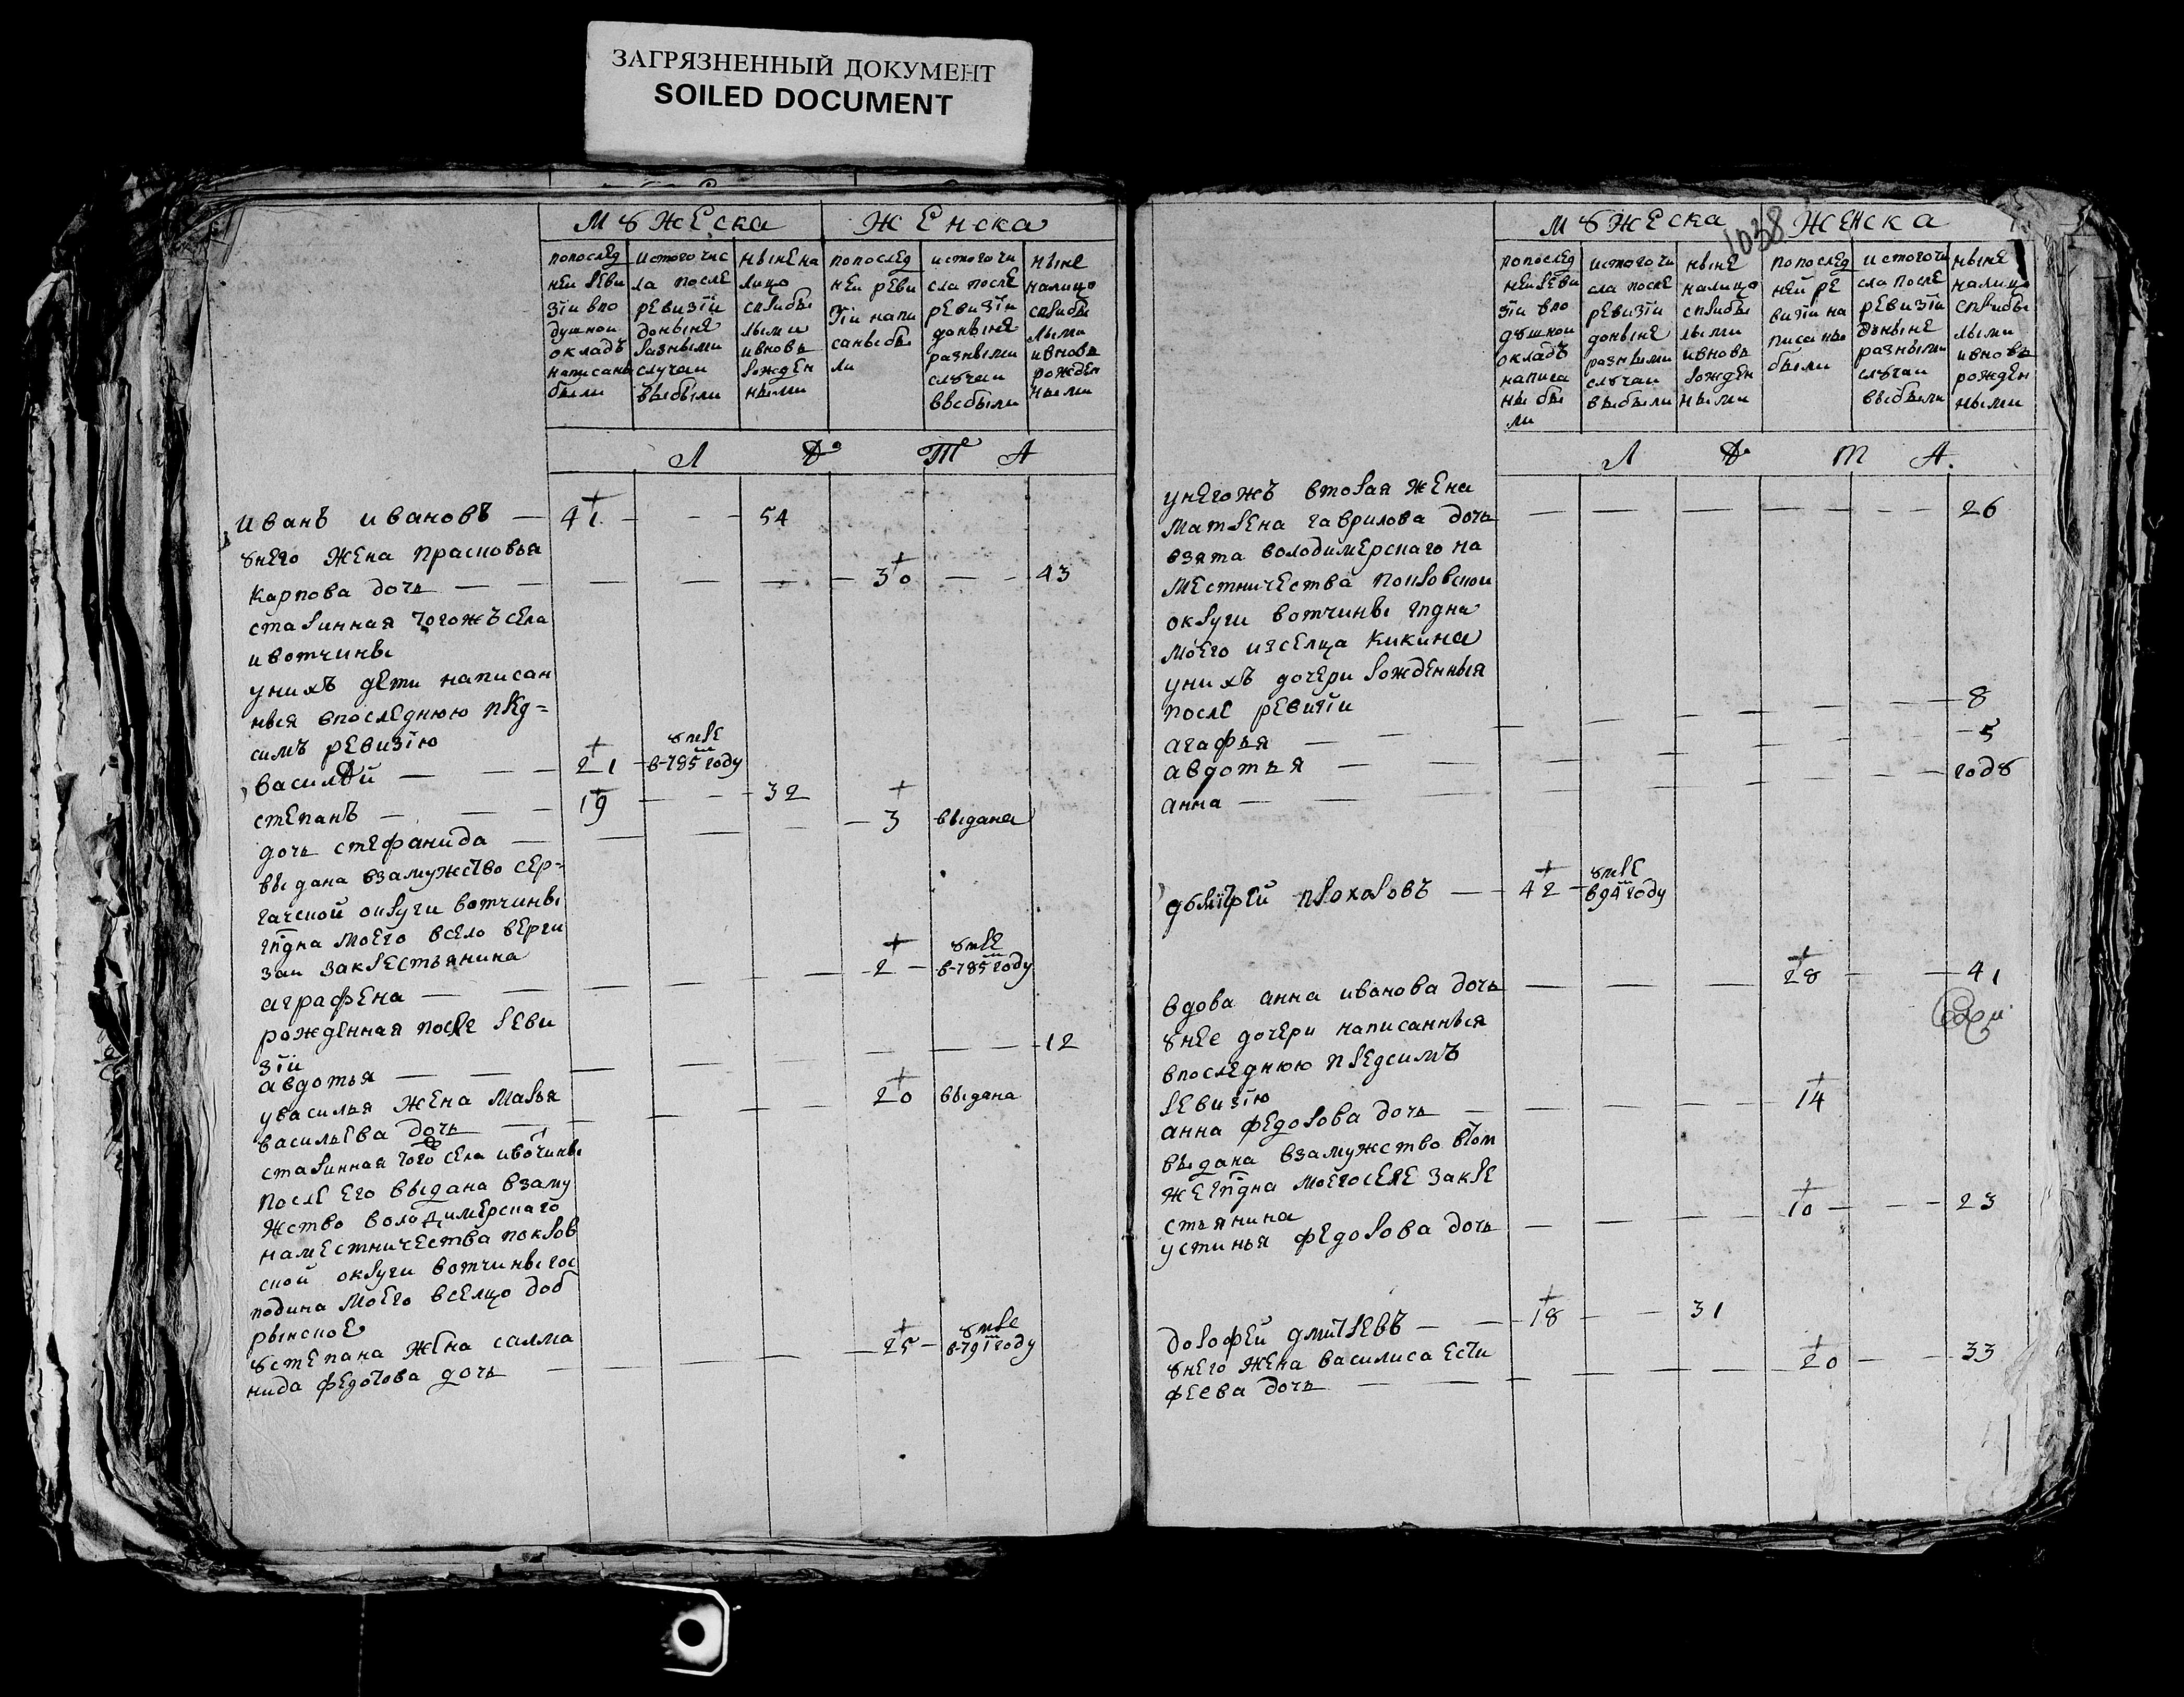 ЗАГРЯЗНЕННЫЙ ДОКУМЕНТ
SOILED DOCUMENT
Мꙋжеска Женска
попослед
ней реви
зiи впо
душной
окладъ
написаны
были
истого чис
ла после
ревизiи
доныне
разными
случаи
выбыли
ныне на
лицо
сприбы
лыми
ивновь
рожден
ными
попослед
ней реви
зiи напи
саны бы
ли
истого чи
сла после
ревизiи
доныне
разными
случаи
выбыли
ныне
налицо
сприбы
лыми
ивновь
рожден
ными
Л Ѣ Т А
иванъ ивановъ — 41 — — 54
ꙋнего жена прасковья
карпова дочь — — — — — 30 — — 43
старинная тогожъ села
ивотчины
унихъ дети написан
ныя впоследнюю пред=
симъ ревизiю
василѣй — — — 21 ꙋмре в-785м году
степанъ — — 19 — — 32
дочь стефанида — — — — — 3 выдана
выдана взамужство сер=
гачской округи вотчины
гпдна моего всело верги
заи закрестьянина
аграфена — — — — — 2 — ꙋмре в-785м году
рожденная после реви
зiи
авдотья — — — — — — — 12
увасилья жена марья
васильева дочь — — — — 20 выдана
старинная того села ивотчины
после его выдана взаму
жство володимерскаго
наместничества покров
ской округи вотчины гос
подина моего вселцо доб
рынское
ꙋстепана жена салма
нида федотова дочь — — — — 25 — ꙋмре в-791м году
1038
Мꙋжеска Женска
попослед
ней реви
зiи впо
дꙋшной
окладъ
написа
ны бы
ли
истого чи
сла после
ревизiи
доныне
разными
слꙋчаи
выбыли
ныне
налицо
сприбы
лыми
ивновь
рожден
ными
попослед
ней ре
визiи на
писаны
были
истого чи
сла после
ревизiи
доныне
разными
слꙋчаи
выбыли
ныне
налицо
сприбы
лыми
ивновь
рожден
ными
Л Ѣ Т А.
унегожъ вторая жена
матрена гаврилова дочь — — — — — 26
взята володимерскаго на
местничества покровской
округи вотчины гпдна
моего изселца кикина
унихъ дочери рожденныя
после ревизiи
агафья — — — — — — — 8
авдотья — — — — — — — 5
анна — — — — — — — годꙋ
прохоровъ — 42 — ꙋмре в94м году
вдова анна иванова дочь — — — 28 — — 41
ꙋнее дочери написанныя
впоследнюю предсимъ
ревизiю
анна федорова дочь — — — — 14
выдана взамужство втом
же гпдна моего селе закре
стьянина
устинья федорова дочь — — — — 10 — — 23
дорофей дмитревъ — — 18 — — 31
ꙋнего жена василиса ести
феева дочь — — — — — 20 — — 33